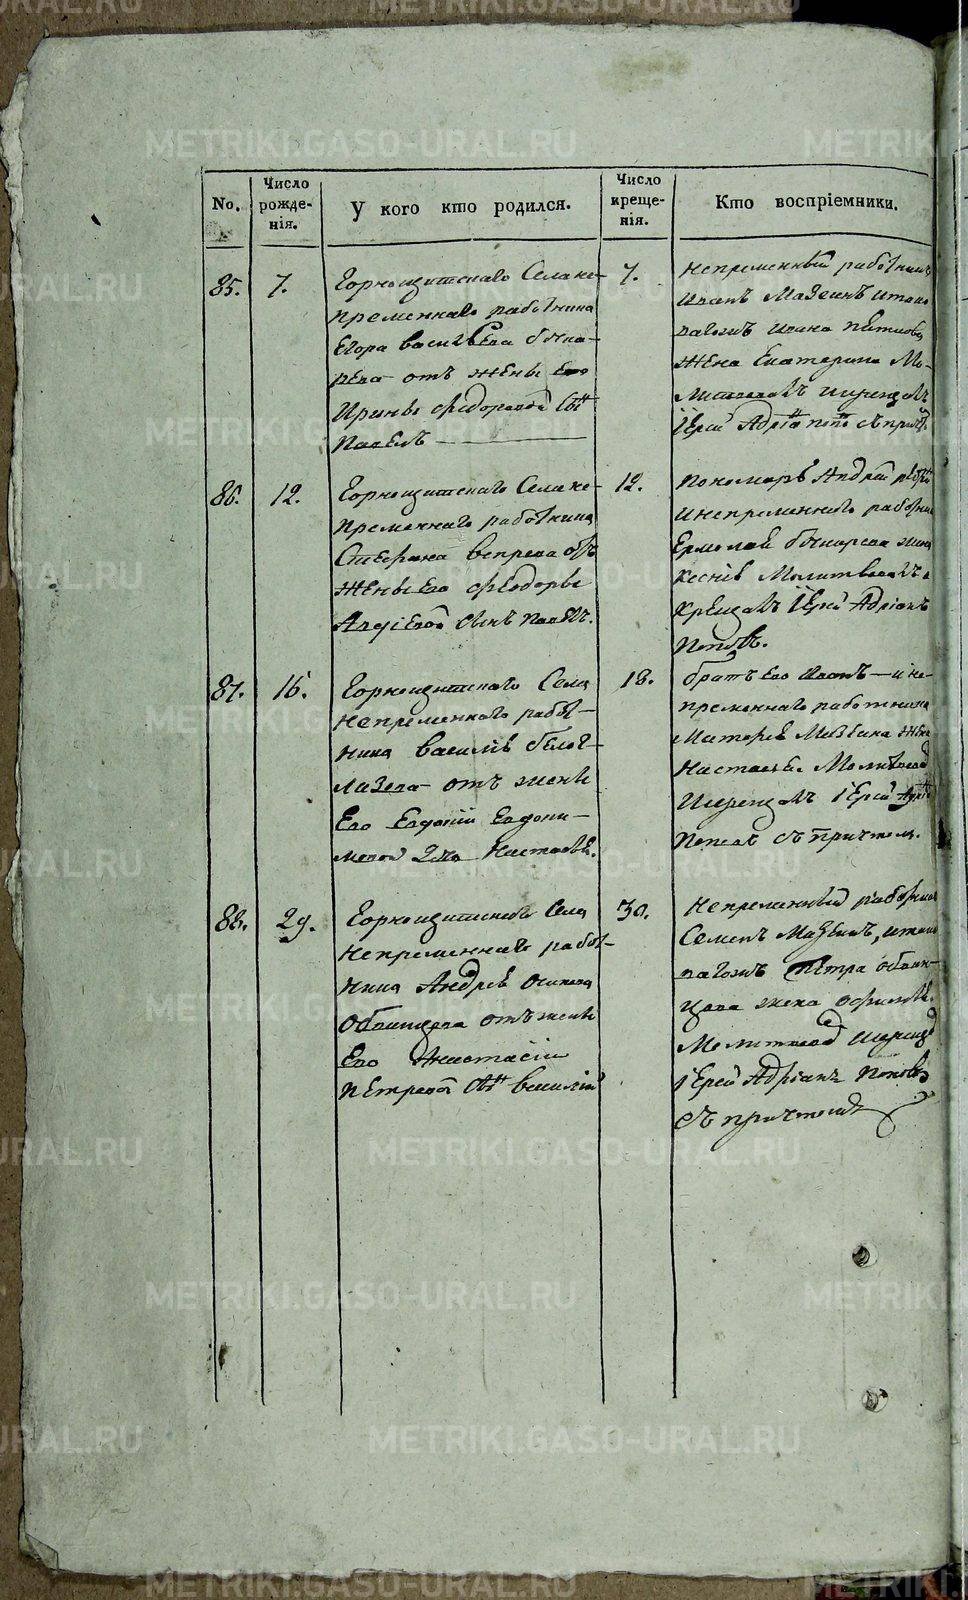 No.
Число рожде-нія.
У кого кто родился.
Число креще-нія.
Кто воспріемники.
85.
7.
Горнощитскаго Села не-
пременнаго работника
Егора васильева бочка-
рева отъ жены Его
Ирины Федоровой Сынъ
Павелъ
7.
непременный работникъ
иванъ Мазеинъ и того
Жена Екатерина Мо-
литвовалъ икрещалъ
іерей Адріанъ поповъ съ прич
86.
12.
Горнощитскаго Села не-
пременнаго работника
Стефана вепрева отъ
Жены Его Феодоры
сынъ Павелъ.
12.
пономарь Андрей
и непременнаго работника
Ермолая бочкарева жена
Ксенія Молитвовалъ и
Крещалъ іерей Адріанъ
поповъ.
87.
16.
Горнощитскаго Села
Непременнаго работ-
ника василія белог-
лазева отъ жены
Его Евдокіи Евдоки-
мовой дочь Настасья.
18.
братъ Его иванъ и не-
пременнаго работника
Матфея Мазеина жена
Настасья. Молитвовал
Икрещалъ іерей Адріанъ
Поповъ съ причтомъ.
88.
29.
Горнощитскаго Села
Непременнаго работ-
ника Андрея Осипова
Обвинцева отъ жены
Его Анастасіи
Петровой сынъ василій
30.
Непременный работникъ
Семенъ Мазеинъ, и того
Петра обвин-
цова жена
Молитвовал икрещал
іерей Адріанъ Поповъ
съ причтомъ
METRIKI.GASO-URAL.RU